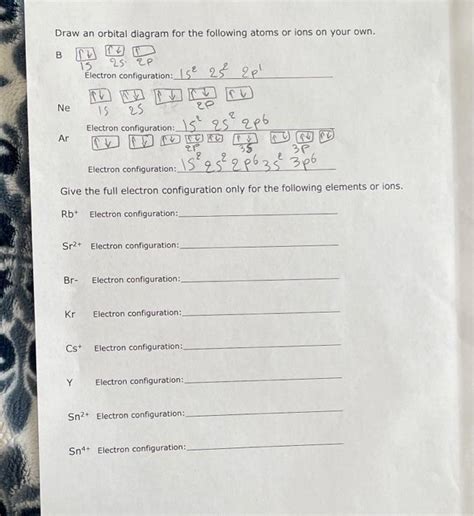 Draw an orbital diagram for the following atoms or ions on your own.
B ↑↓ ↑↓ ↑
1S 2S 2P
Electron configuration: 1S² 2S² 2p¹
↑↓ ↑↓ ↑↓ ↑↓ ↑↓
Ne 1S 2S 2P
Electron configuration: 1S² 2S² 2p6
Ar ↑↓ ↑↓ ↑↓ ↑↓ ↑↓ ↑↓ ↑↓ ↑↓ ↑↓
2P 3S 3P
Electron configuration: 1S² 2S² 2p6 3S² 3p6
Give the full electron configuration only for the following elements or ions.
Rb⁺ Electron configuration:
Sr²⁺ Electron configuration:
Br- Electron configuration:
Kr Electron configuration:
Cs⁺ Electron configuration:
Y Electron configuration:
Sn²⁺ Electron configuration:
Sn⁴⁺ Electron configuration: